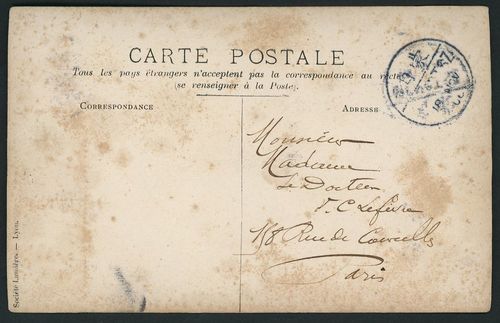 CARTE POSTALE
Tous les pays étrangers n'acceptent pas la correspondance au recto
(se renseigner à la Poste).
CORRESPONDANCE
ADRESSE
Monsieur
Madame
Le Docteur
Lefèvre
118 Rue de Courcelles
Paris
Société Lumière. — Lyon.